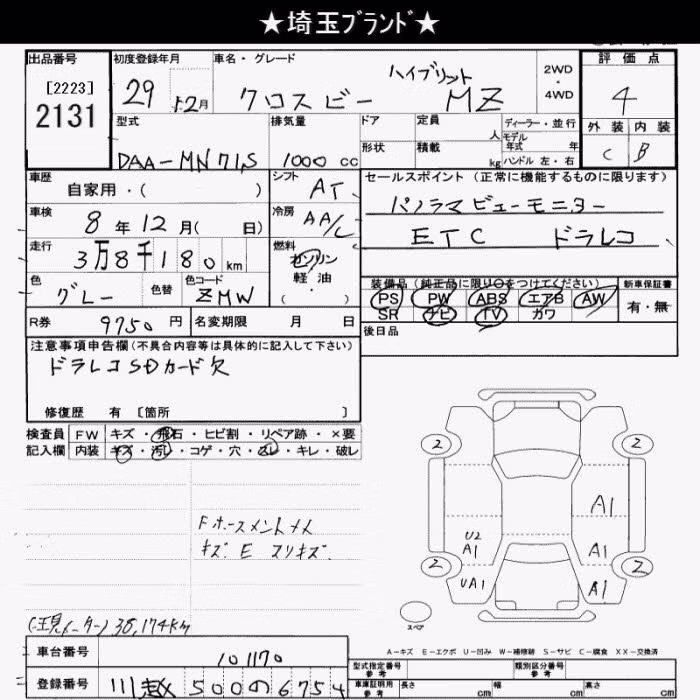 ★埼玉ブランド★
出品番号
[2223]
2131
初度登録年月
29 12月
車名・グレード
ハイブリット
クロスビー MZ
2WD
・
4WD
評価点
4
外装 内装
C B
型式
DAA-MN71S
排気量
1000 cc
ドア
形状
定員
人
積載
kg
ディーラー・並行
モデル
年式 年
ハンドル 左・右
車歴
自家用・( )
シフト
AT
車検
8年12月( 日)
冷房
AA/C
走行
3万8千180km
燃料
ガソリン
軽油
( ・ )
色
グレー
色替
色コード
ZMW
R券
9750円
名変期限 月 日
セールスポイント(正常に機能するものに限ります)
パノラマビューモニター
ETC ドラレコ
装備品(純正品に限り○をつけてください)
PS PW ABS エアB AW
SR ナビ TV カワ
新車保証書
有・無
後日品
注意事項申告欄(不具合内容等は具体的に記入して下さい)
ドラレコSDカード欠
修復歴 有 [箇所 ]
検査員
記入欄
FW キズ・飛石・ヒビ割・リペア跡・×要
内装 キズ・汚れ・コゲ・穴・スレ・キレ・破レ
キズ E スリキズ
2 2
A1
U2
A1 A1
2 2
UA1 A1
スペア
(現メーター) 38,174km
A-キズ E-エクボ U-凹み W-補修跡 S-サビ C-腐食 XX-交換済
車台番号
101170
登録番号
川越 500の6754
型式指定番号
参考
類別区分番号
参考
車庫証明用
参考
長さ cm
幅 cm
高さ cm